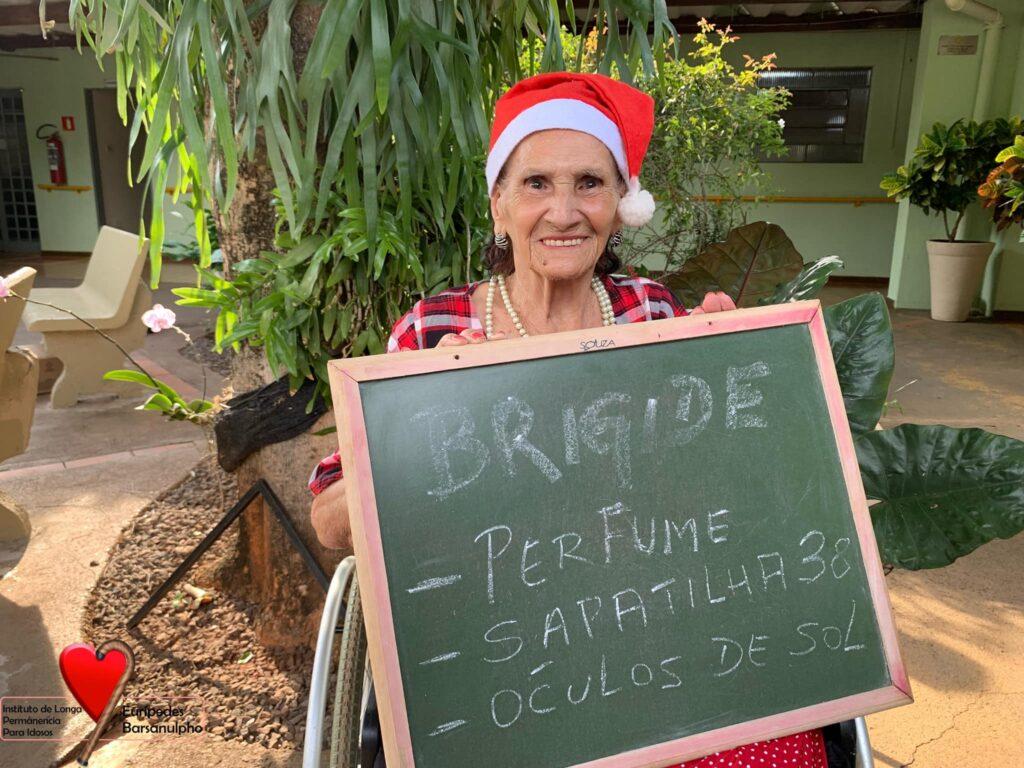 SOUZA
BRIGIDE
- PERFUME
- SAPATILHA 38
- ÓCULOS DE SOL
Instituto de Longa
Permânencia
Para Idosos
Eurípedes
Barsanulpho